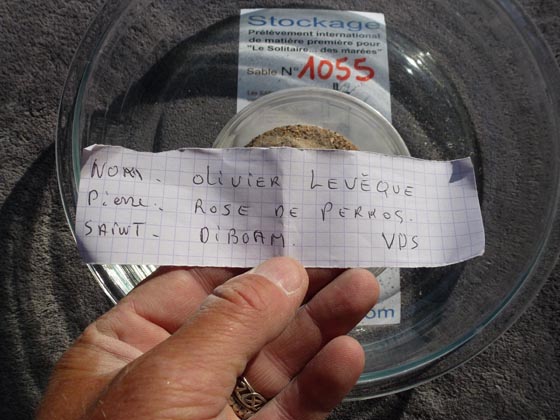 Stockage
Prélèvement international
de matière première pour
"Le Solitaire... des marées"
Sable N° 1055
NOM - OLIVIER LEVÊQUE
Pierre - ROSE DE PERROS.
SAINT - DIBOAM. VDS
.com